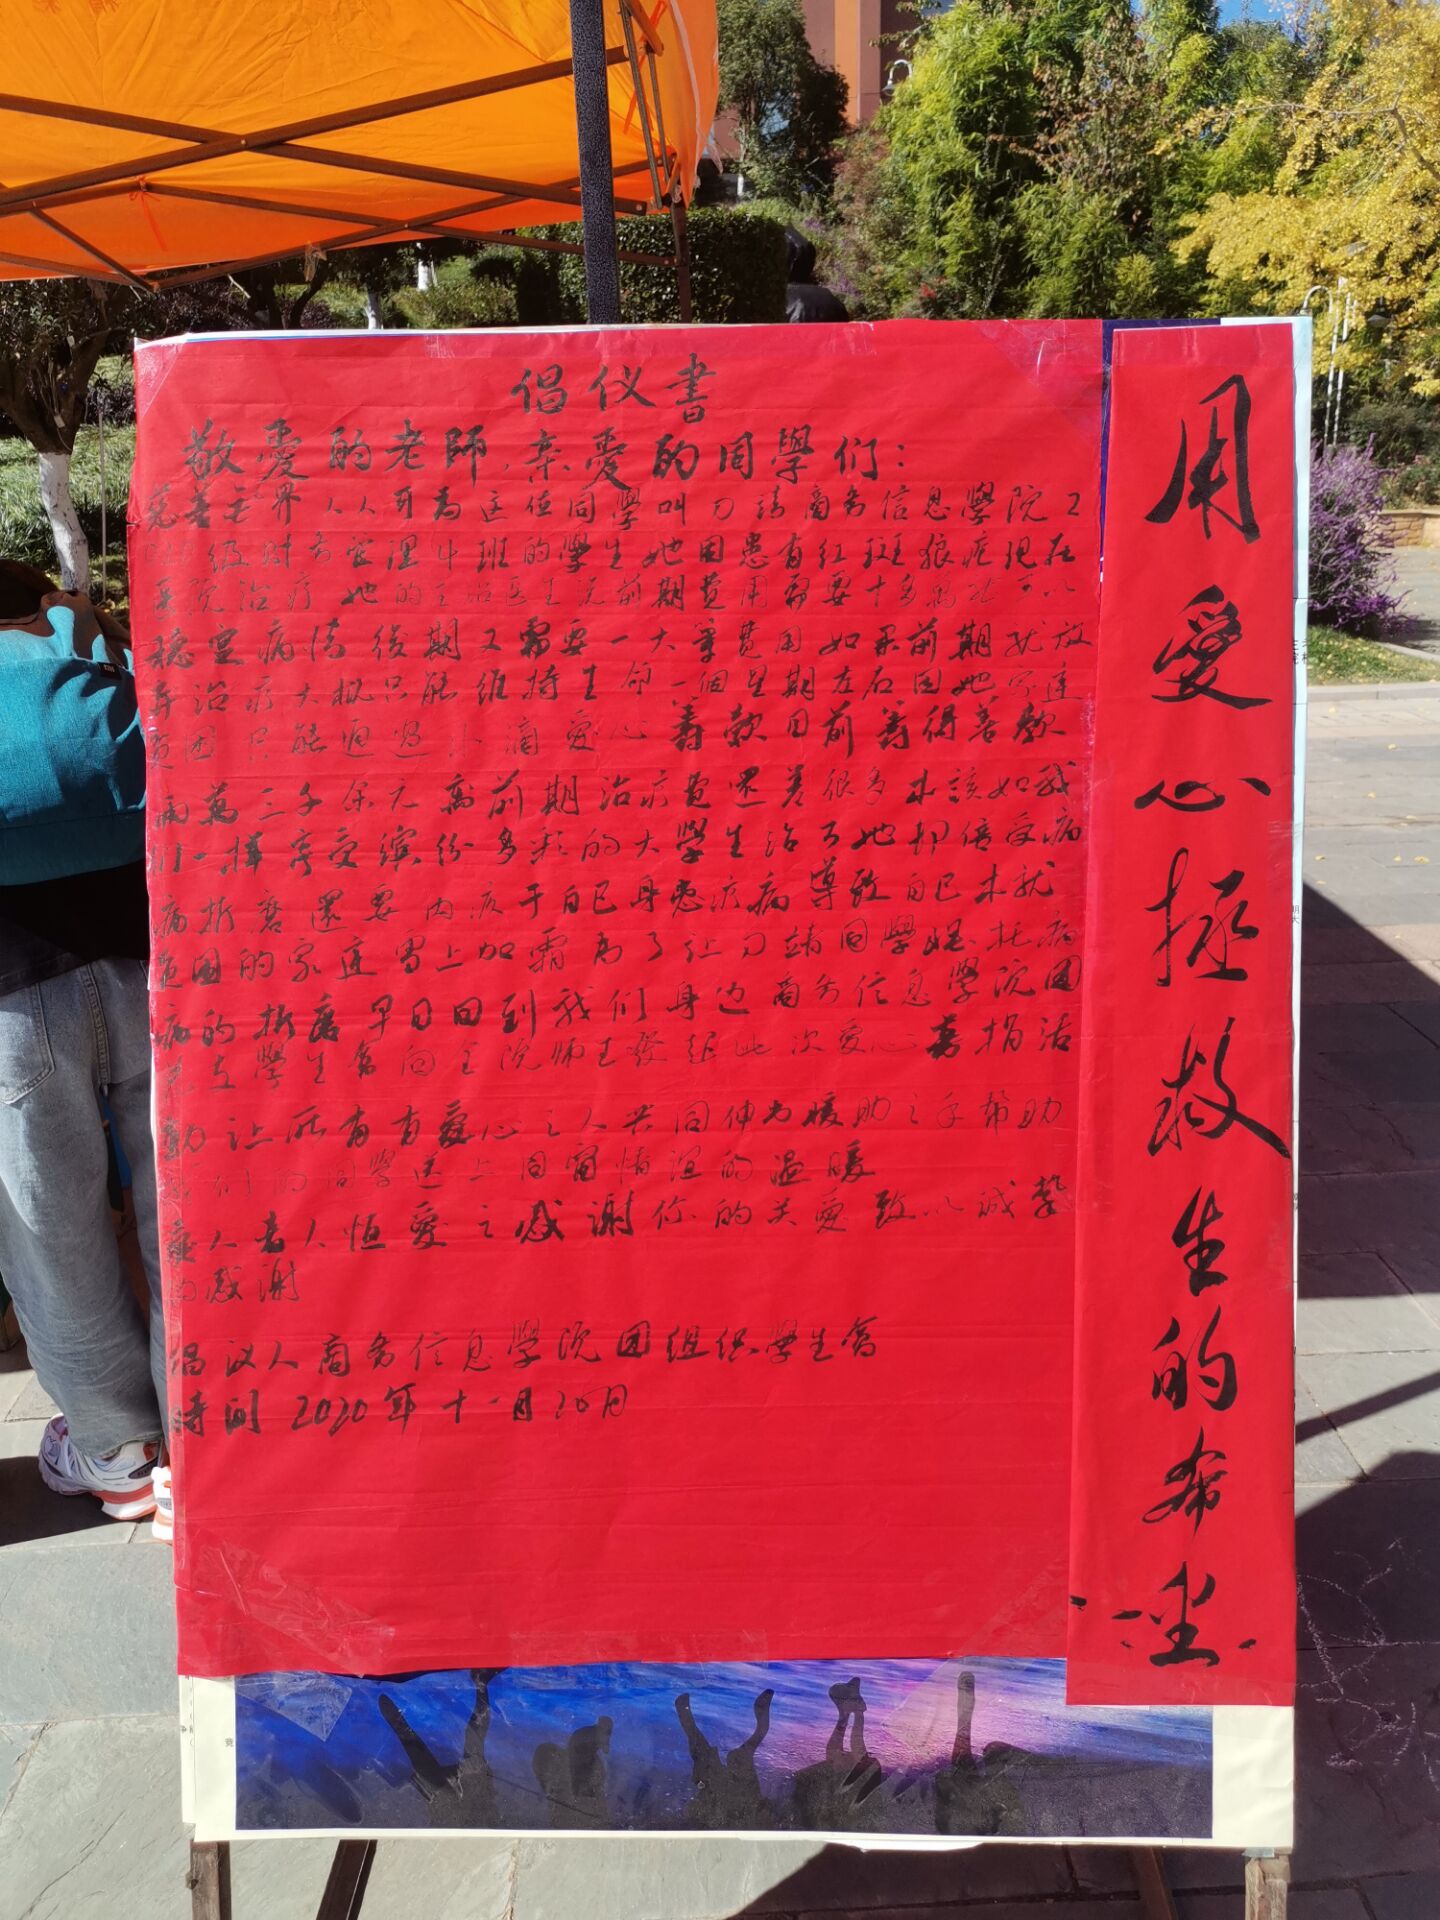 倡仪書
敬愛的老師、亲愛的同學们：
慈善无界人人可為这位同學叫刀靖商务信息學院2
级财务管理4班的學生她因患有红斑狼疮现在
医院治疗她的主治医生说前期費用需要十多萬才可以
穩定病情後期又需要一大筆費用如果前期就放
弃治疗大概只能维持生命一個星期左右因她家庭
贫困只能通過小滴愛心籌款目前籌得善款
兩萬三千余元离前期治疗費還差很多本該如我
们一样享受缤纷多彩的大學生活可她却倍受病
痛折磨還要内疚于自已身患疾病導致自已本就
贫困的家庭雪上加霜為了让刀靖同學摆托病
痛的折磨早日回到我们身边商务信息學院团
总支學生會向全院师生發起此次愛心募捐活
動让所有有愛心之人共同伸出援助之手帮助
我们的同學送上同窗情谊的温暖
愛人者人恒愛之感謝你的关愛致以诚挚
的感謝
倡议人商务信息學院团组织學生會
時间2020年十一月20日
用愛心拯救生的希望